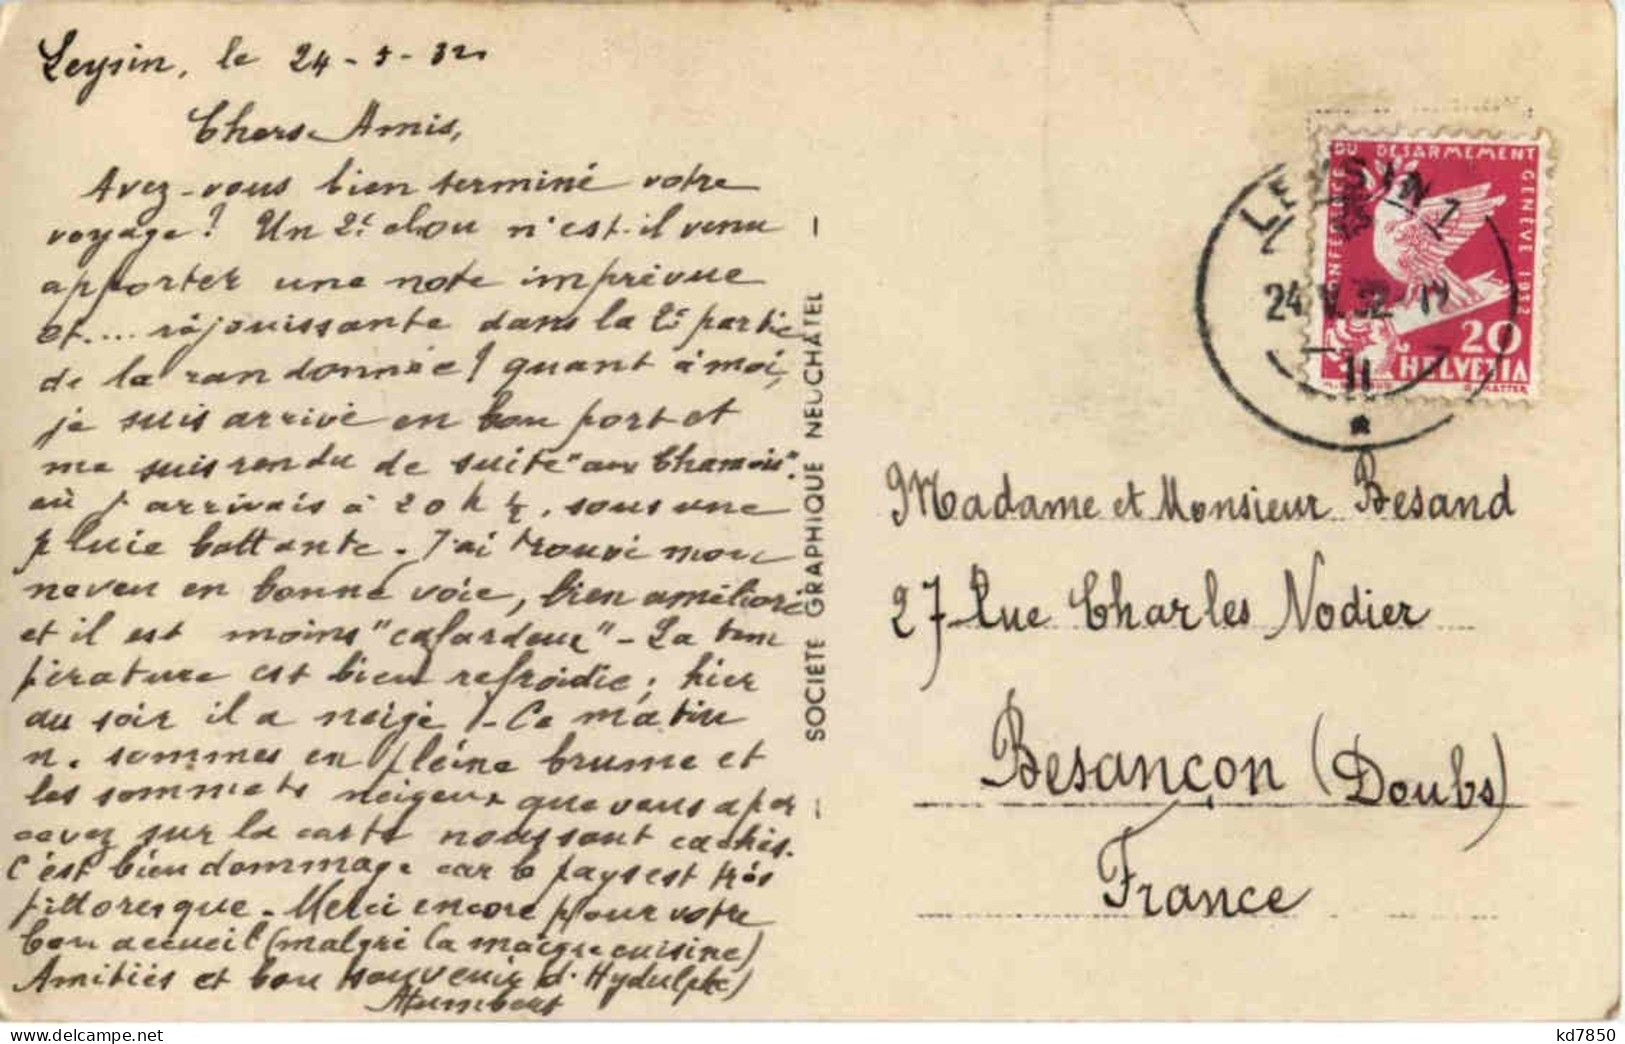 Leysin, le 24-5-32
Chers Amis,
Avez-vous bien terminé votre
voyage? Un 2e chou n'est-il venu
apporter une note imprévue
et.... réjouissante dans la 2e partie
de la randonnée! quant à moi,
je suis arrivé en bon port et
me suis rendu de suite "aux Chamois"
où j'arrivais à 20 h ½, sous une
pluie battante. J'ai trouvé mon
neveu en bonne voie, bien amélioré
et il est moins "cafardeux" - La tem
pérature est bien refroidie; hier
au soir il a neigé - Ce matin
n. sommes en pleine brume et
les sommets neigeux que vous aper
cevez sur la carte nous sont cachés.
C'est bien dommage car le pays est très
pittoresque. Merci encore pour votre
bon accueil (malgré la maigre cuisine)
Amitiés et bon souvenir d'Hydulphe)
Humbert
SOCIÉTÉ GRAPHIQUE NEUCHÂTEL
CONFERENCE DU DESARMEMENT GENÈVE 1932
20
HELVETIA
LEYSIN 1
24.V.32-19
II
Madame et Monsieur Besand
27 Rue Charles Nodier
Besançon (Doubs)
France
kd7850